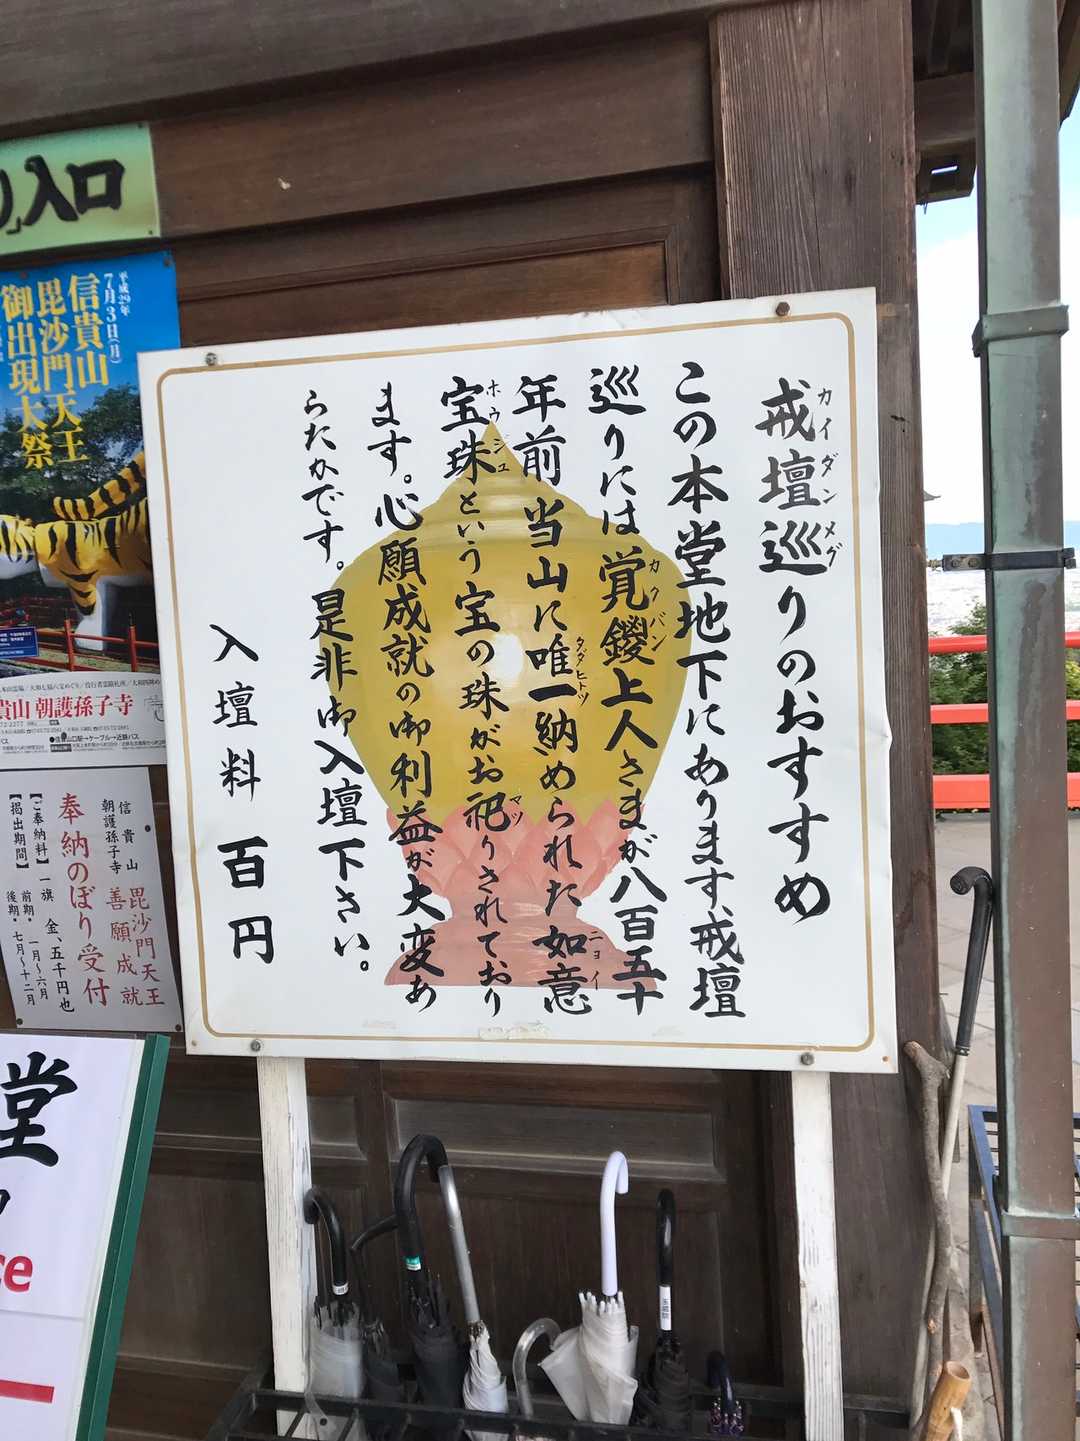 戒壇巡りのおすすめ
カイダンメグ
この本堂地下にあります、戒壇
巡りには覚鑁上人さまが八百五十
カクバン
年前当山に唯一納められた如意
タダヒトツ
ニョイ
宝珠という宝の珠がお祀りされており
ホウジュ
マツ
ます。心願成就の御利益が大変あ
らたかです。是非御入壇下さい。
入壇料 百円
入口
平成29年
7月3日(月)
信貴山
毘沙門天王
御出現大祭
貴山 朝護孫子寺
信貴山
朝護孫子寺
毘沙門天王
善願成就
奉納のぼり受付
【ご奉納料】一旗 金、五千円也
【掲出期間】
前期・一月〜六月
後期・七月〜十二月
堂
ce